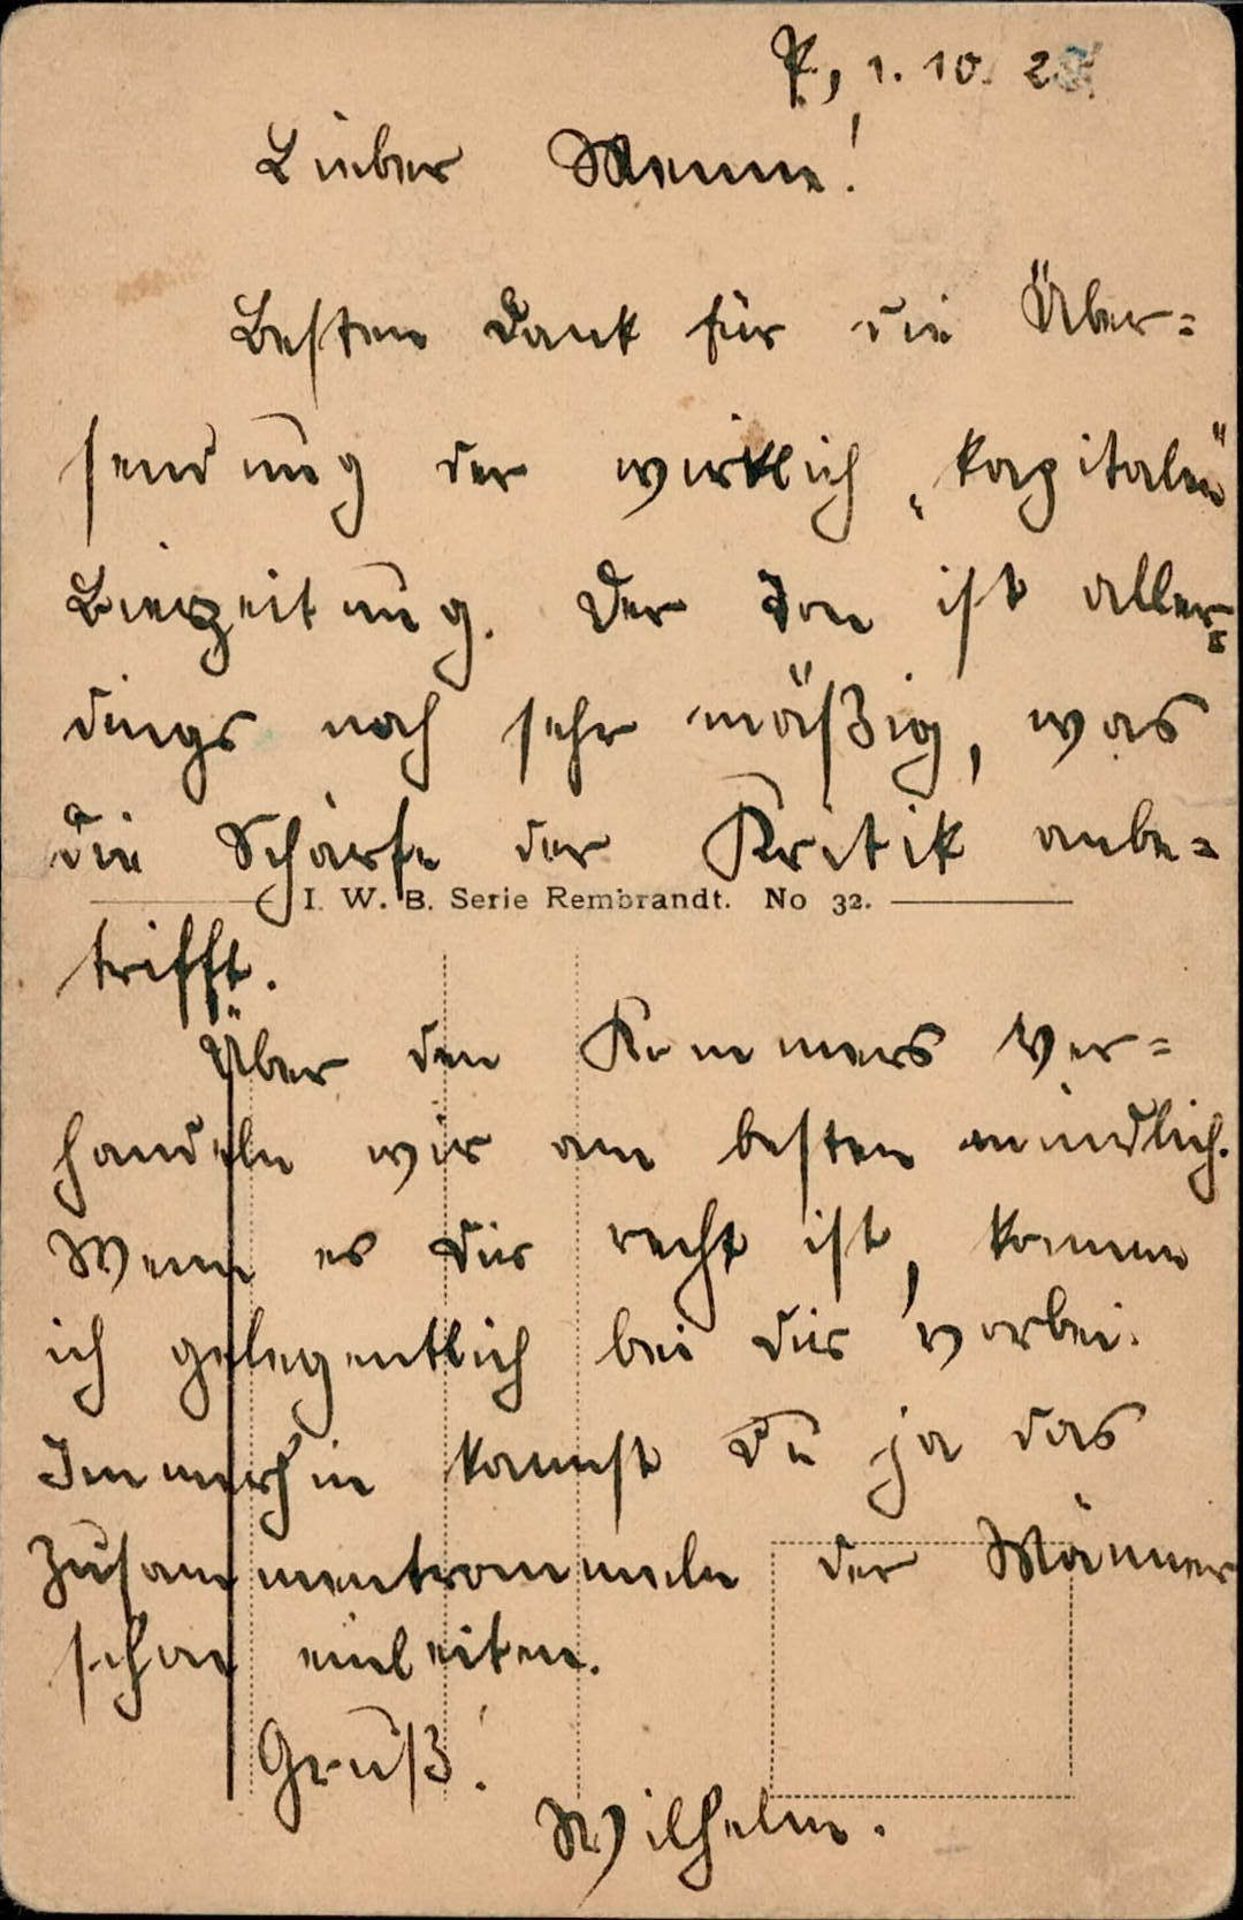 P., 1. 10. 2
Lieber Menne!
Besten Dank für die Über=
sendung der wirklich „kapitalen"
Bierzeitung. Der Ton ist aller=
dings noch sehr mäßig, was
die Schärfe der Kritik anbe=
I. W. B. Serie Rembrandt. No 32.
trifft.
Über den Kommers ver=
handeln wir am besten mündlich.
Wenn es Dir recht ist, komme
ich gelegentlich bei Dir vorbei.
Immerhin kannst Du ja das
Zusammentrommeln der Männer
schon einleiten.
Gruß!
Wilhelm.